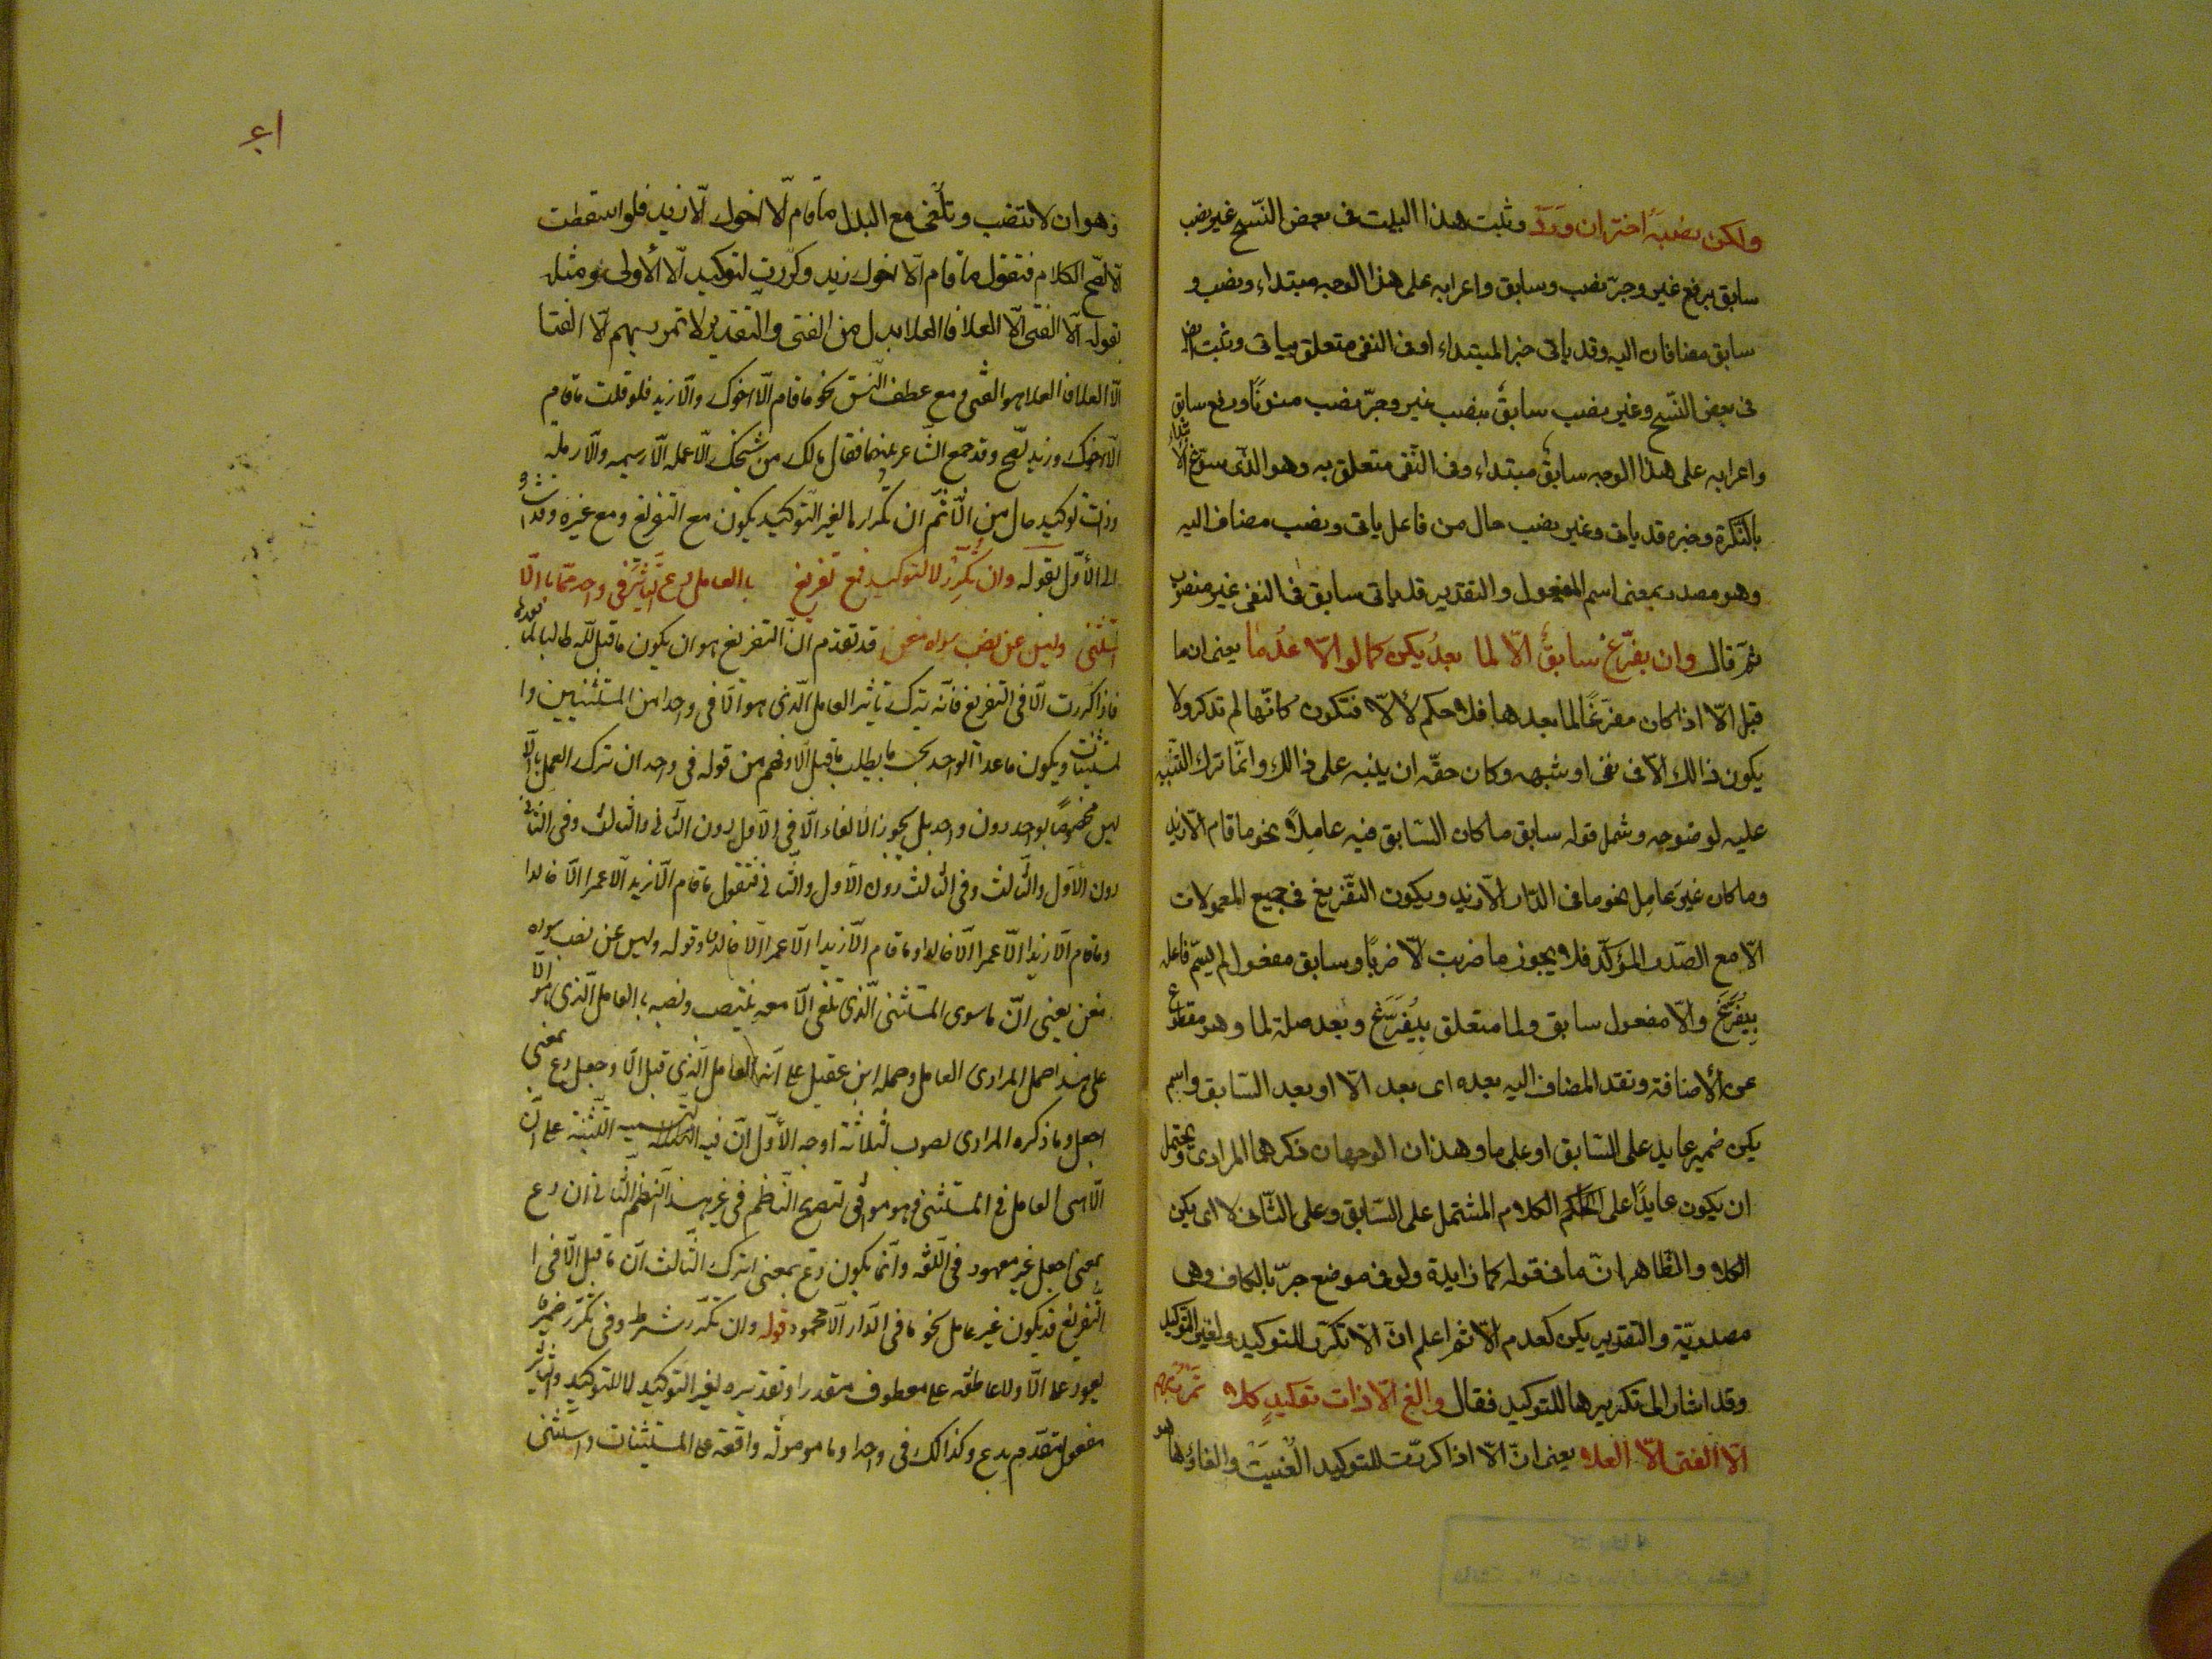 ولكن نصبَه اختر ان وَرَدْ وثبت هذا البيت فى بعض النسّخ غير نصب
سابق برفع غير وجرّ نصب وسابق واعرابه على هذا الوجه مبتداء ونصب و
سابق مضافان اليه وقد ياتى خبر المبتداء وفى النفى متعلق بياتى وثبت ايضا
فى بعض النسّخ وغير نصب سابقٌ بنصب غير وجرّ نصب منونًا ورفع سابق
واعرابه على هذا الوجه سابق مبتداء وفى النّفى متعلق به وهو الذّى سوّغ الابتداء
بالنّكرة وخبره قد ياتى وغير نصب حال من فاعل ياتى ونصب مضاف اليه
وهو مصدر بمعنى اسم المفعول والتقدير قد ياتى سابق فى النفى غير منصوب
ثمّ قال وان يفرّغ سابقٌ الّا لما بعدُ يكن كما لو الّا عُدِما يعنى ان ما
قبل الّا اذا كان مفرّغًا لما بعدها فلا حكم لالّا فتكون كانّها لم تذكر ولا
يكون ذالك الّا فى نفى او شبهه وكان حقّه ان ينبه على ذالك وانّما ترك التنبيه
عليه لوضوحه وشمل قوله سابق ما كان السّابق فيه عاملًا نحو ما قام الّا زيد
وما كان غير عامل نحو ما فى الدّار الّا زيد ويكون التّفريغ فى جميع المعمولات
الّا مع المصّدر المؤكّد فلا يجوز ما ضربت الّا ضربًا وسابق مفعول لم يسّم فاعله
بيُفَرَّغ والّا مفعول سابق ولما متعلق بيُفَرَّغ وبعد صلة لما وهو مقطوع
عن الأضافة وتقد المضاف اليه بعده اى بعد الّا او بعد السّابق واسم
يكن ضمير عايد على السّابق او على ما وهذان الوجهان ذكرهما المرادى ويحتمل
ان يكون عايدًا على الكلام المشتمل على السّابق وعلى الثّانى لا اى يكن
الكلام والظّاهر انّ ما فى قوله كما زايدة ولو فى موضع جرّ بالكاف وهى
مصدريّة والتقدير يكن كعدم الّا ثمّ اعلم انّ الّا تكرّر للتوكيد ولغير التوكيد
وقد اشار الى تكريرها للتوكيد فقال والغ الّا ذات توكيدٍ كلا تمرر بهم
الّا الفتى الّا العلا يعنى انّ الّا اذا كررّت للتوكيد الغيت والغاؤها هو
اع
وهو ان لا تنصب وتلغى مع البدل ما قام الّا اخوك الّا زيد فلو اسقطت
الّا لصّح الكلام فتقول ما قام الّا اخوك زيد وكرّرت لتوكيد الّا الأولى ومثله
بقوله الّا الفتى الّا العلا فالعلا بدل من الفتى والتقدير لا تمرر بهم الّا الفتا
الّا العلا فالعلا هو الفتى ومع عطف النّسق نحو ما قام الّا اخوك والّا زيد فلو قلت ما قام
الّا اخوك وزيد لصّح وقد جمع الشّاعر بينهما فقال مالك من شيخك الّا عمله الّا رسيمه والّا رمله
وذات توكيد حال من الّا ثمّ ان تكرارها لغير التوكيد يكون مع التفريغ ومع غيره وقد اشار
الى الأوّل بقوله وان تُكَرَّرْ لا لتوكيد فمع تفريغ بالعامل دع التأثير فى واحد ممّا بالّا
استثنى وليس عن نصب سواه مغنى قد تقدّم انّ التفريغ هو ان يكون ما قبل الّا طالبا لما بعده
فاذا كررت الّا فى التفريغ فانّه يترك تاثير العامل الّذى هو الّا فى واحد من المستثنيين وا
لمستثنيات ويكون ما عدا الواحد بحسب ما يطلب ما قبل الّا وفهم من قوله فى واحد ان ترك العمل بالّا
ليس مخصوصًا بواحد دون واحد بل يجوز الالغاء الّا فى الاوّل دون الثّانى والثّالث وفى الثّانى
دون الأوّل والثّالث وفى الثّالث دون الأول والثّانى فتقول ما قام الّا زيد الّا عمرا الّا خالدا
وما قام الّا زيدا الّا عمرا الّا خالدا وما قام الّا زيدا الّا عمرا الّا خالد وقوله وليس عن نصب سواه
مغن يعنى انّ ما سوى المستثنى الّذى تلغى الّا معه ينتصب ونصبه بالعامل الّذى هو الّا
على هذا حمل المرادى العامل وحمله ابن عقيل على انّه العامل الّذى قبل الّا وجعل دع بمعنى
اجعل وما ذكره المرادى اصوب لثلاثة اوجه الأوّل انّ فيه التنبيه على انّ
الّا هى العامل فى المستثنى فهو موافق لتصريح النّاظم فى غير هذا النظم الثّانى ان دع
بمعنى اجعل غير معهود فى اللّغه وانّما يكون دع بمعنى اترك الثّالث ان ما قبل الّا فى ا
لتّفريغ قد يكون غير عامل نحو ما فى الدّار الّا محمود قوله وان تكرّر شرط وفى تكرّر ضمير
يعود على الّا ولا عاطفه على معطوف مقدر او تقديره لغير التوكيد لا للتوكيد والتأثير
مفعول مقدّم بدع وكذالك فى واحد وما موصوله واقعة على المستثنيات واستثنى